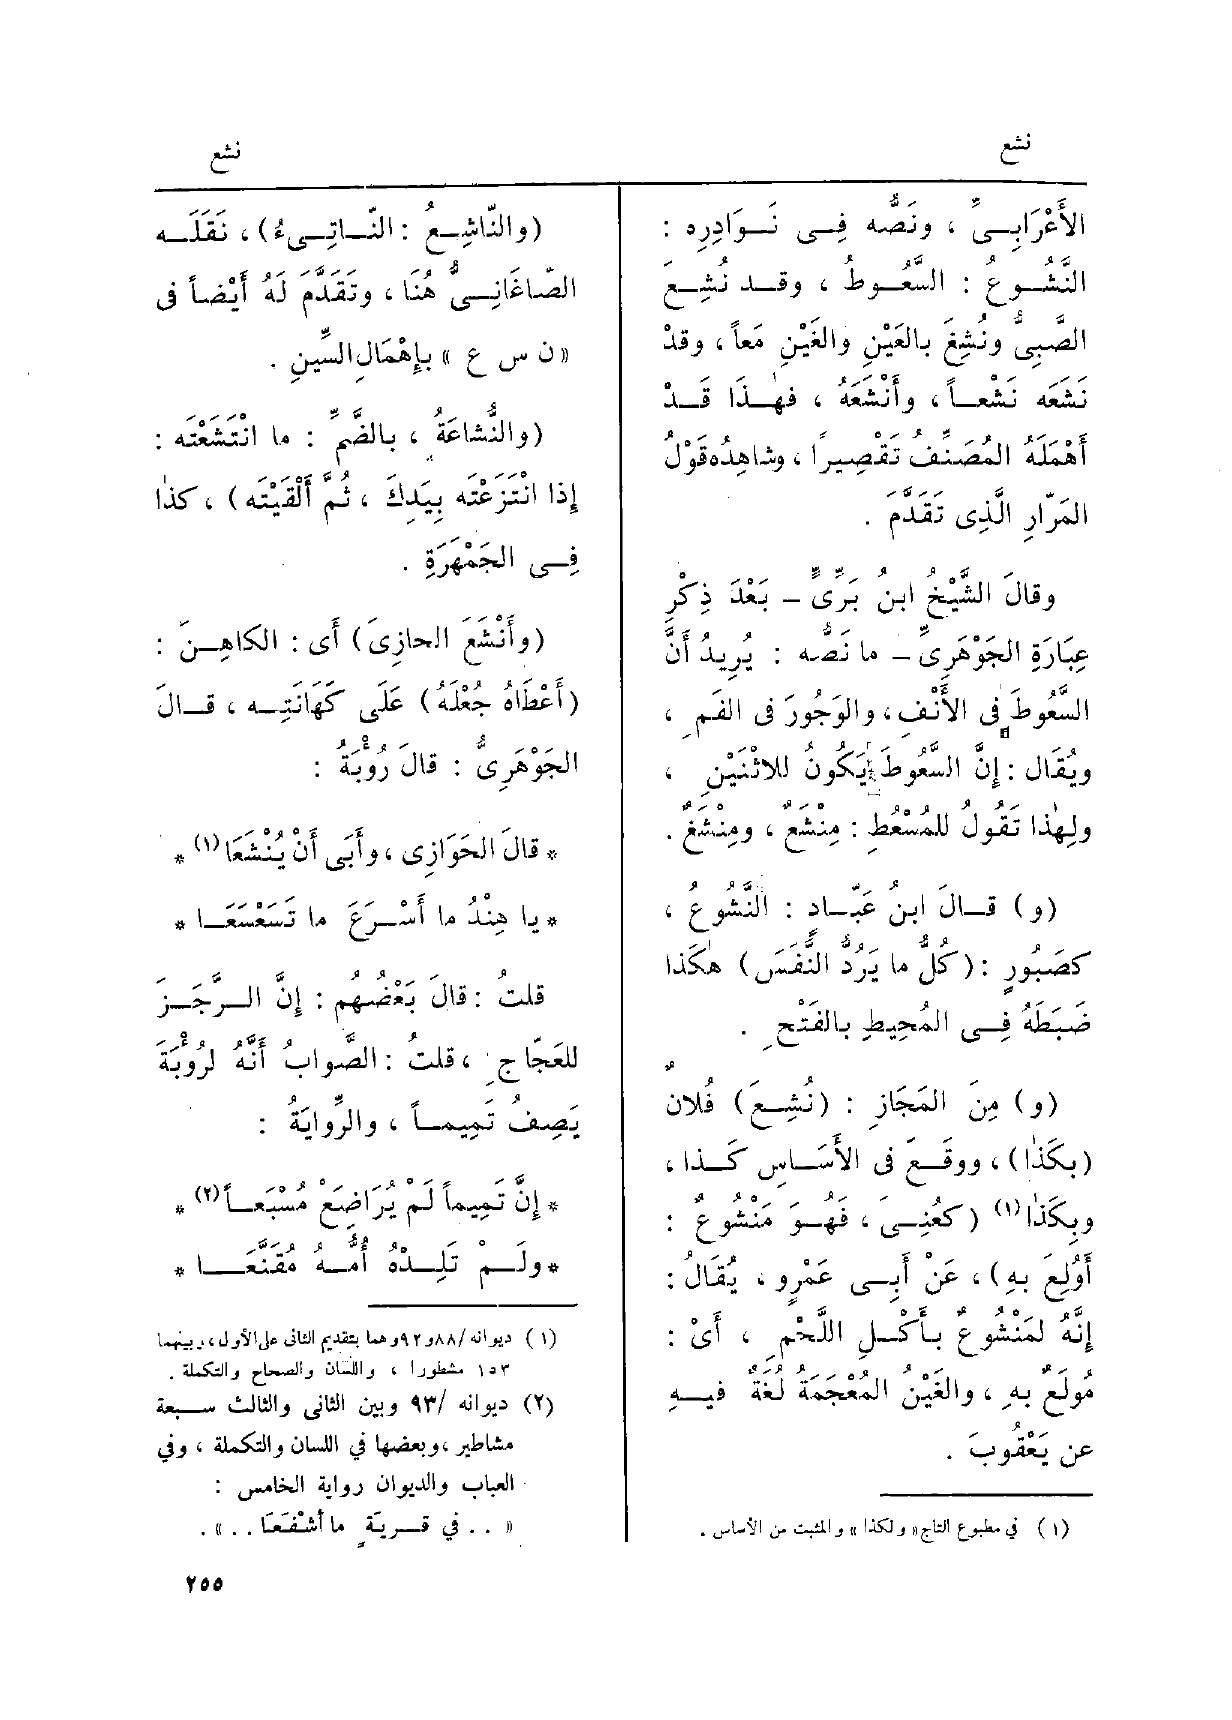 نشع
نشع
الأَعْرَابِىِّ ، ونَصُّه فِى نَوَادِرِه :
النَّشُوعُ : السَّعُوطُ ، وقد نُشِعَ
الصَّبِىُّ ونُشِغَ بالعَيْنِ والغَيْنِ مَعاً ، وقدْ
نَشَعَه نَشْعاً ، وأَنْشَعَهُ ، فهٰذَا قَدْ
أَهْمَلَهُ المُصَنِّفُ تَقْصِيرًا ، وشاهِدُه قَوْلُ
المَرّارِ الَّذِى تَقَدَّمَ .
وقالَ الشَّيْخُ ابنُ بَرِّىٍّ – بَعْدَ ذِكْرِ
عِبَارَةِ الجَوْهَرِىِّ – ما نَصُّه : يُرِيدُ أَنَّ
السَّعُوطَ فِى الأَنْفِ ، والوَجُورَ فى الفَمِ ،
ويُقَال : إِنَّ السَّعُوطَ يَكُونُ للاثْنَيْنِ ،
ولِهٰذا تَقُولُ للمُسْعُطِ : مِنْشَعٌ ، ومِنْشَغٌ .
(و) قالَ ابنُ عَبّادٍ : النَّشُوعُ ،
كصَبُورٍ : (كُلُّ ما يَرُدُّ النَّفَسَ) هٰكَذا
ضَبَطَهُ فِى المُحِيطِ بالفَتْحِ .
(و) مِنَ المَجَازِ : (نُشِعَ) فُلَانٌ
(بكَذَا) ، ووقَعَ فى الأَسَاسِ كَذا ،
وبكَذَا(١) (كعُنِىَ ، فهُوَ مَنْشُوعٌ :
أُولِعَ بهِ) ، عَنْ أَبِى عَمْرٍو ، يُقَالُ :
إِنَّهُ لمَنْشُوعٌ بأَكْلِ اللَّحْمِ ، أَىْ :
مُولَعٌ بهِ ، والغَيْنُ المُعْجَمَةُ لُغَةٌ فيهِ
عن يَعْقُوبَ .
(١) في مطبوع التاج «ولكذا» والمثبت من الأساس .
(والنّاشِعُ : النّاتِىءُ) ، نَقَلَه
الصّاغَانِىُّ هُنَا ، وتَقَدَّمَ لَهُ أَيْضاً فى
« ن س ع » بإِهْمَالِ السِّينِ .
(والنُّشَاعَةُ ، بالضَّمِّ : ما انْتَشَعْتَه :
إِذا انْتَزَعْتَه بِيَدِكَ ، ثُمَّ أَلْقَيْتَه) ، كذا
فِى الجَمْهَرَةِ .
(وأَنْشَعَ الحازِىَ) أَى : الكاهِنَ :
(أَعْطَاهُ جُعْلَهُ) عَلَى كَهَانَتِه ، قالَ
الجَوْهَرِىُّ : قالَ رُؤْبَةُ :
* قالَ الحَوَازِى ، وأَبَى أَنْ يُنْشَعَا(١) *
* يا هِنْدُ ما أَسْرَعَ ما تَسَعْسَعَا *
قلتُ : قالَ بَعْضُهُم : إِنَّ الرَّجَزَ
للعَجّاجِ ، قلتُ : الصَّوابُ أَنَّهُ لرُؤْبَةَ
يَصِفُ تَمِيماً ، والرِّوايَةُ :
* إِنَّ تَمِيماً لَمْ يُرَاضِعْ مُسْبَعاً(٢) *
* ولَمْ تَلِدْهُ أُمُّهُ مُقَنَّعَا *
(١) ديوانه /٨٨ و ٩٢ وهما بتقديم الثانى على الأول ، وبينهما
١٥٣ مشطورا ، واللسان والصحاح والتكملة .
(٢) ديوانه /٩٣ وبين الثانى والثالث سبعة
مشاطير ، وبعضها في اللسان والتكملة ، وفي
العباب والديوان رواية الخامس :
« . . في قريةٍ ما أَشْفَعَا . . » .
٢٥٥